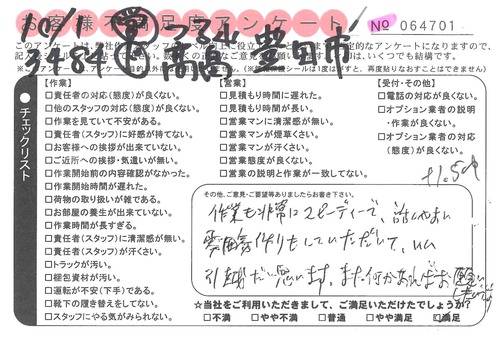 お客様不満足度アンケート
№ 064701
10/1
3484
豊田市
【作業】
□責任者の対応(態度)が良くない。
□他のスタッフの対応(態度)が良くない。
□作業を見ていて不安がある。
□責任者(スタッフ)に好感が持てない。
□お客様への挨拶が出来ていない。
□ご近所への挨拶・気遣いが無い。
□作業開始前の内容確認がなかった。
□作業開始時間が遅れた。
□荷物の取り扱いが雑である。
□お部屋の養生が出来ていない。
□作業時間が長すぎる。
□責任者(スタッフ)に清潔感が無い。
□責任者(スタッフ)が汗くさい。
□トラックが汚い。
□梱包資材が汚い。
□運転が不安(下手)である。
□靴下の履き替えをしてない。
□スタッフにやる気がみられない。
【営業】
□見積もり時間に遅れた。
□見積もり時間が長い。
□営業マンに清潔感が無い。
□営業マンが煙草くさい。
□営業マンが汗くさい。
□営業態度が良くない。
□営業の説明と作業が一致してない。
【受付・その他】
□電話の対応が良くない。
□オプション業者の説明
・作業が良くない。
□オプション業者の対応
(態度)が良くない。
●チェックリスト
その他、ご意見・ご要望等ありましたらお書き下さい。
作業も非常にスピーディーで、話しやすい
雰囲気作りもしていただいて、いい
引越だと思います。また何かあればお願い
☆当社をご利用いただきまして、ご満足いただけたでしょうか?
□不満 □やや不満 □普通 □やや満足 ☑満足